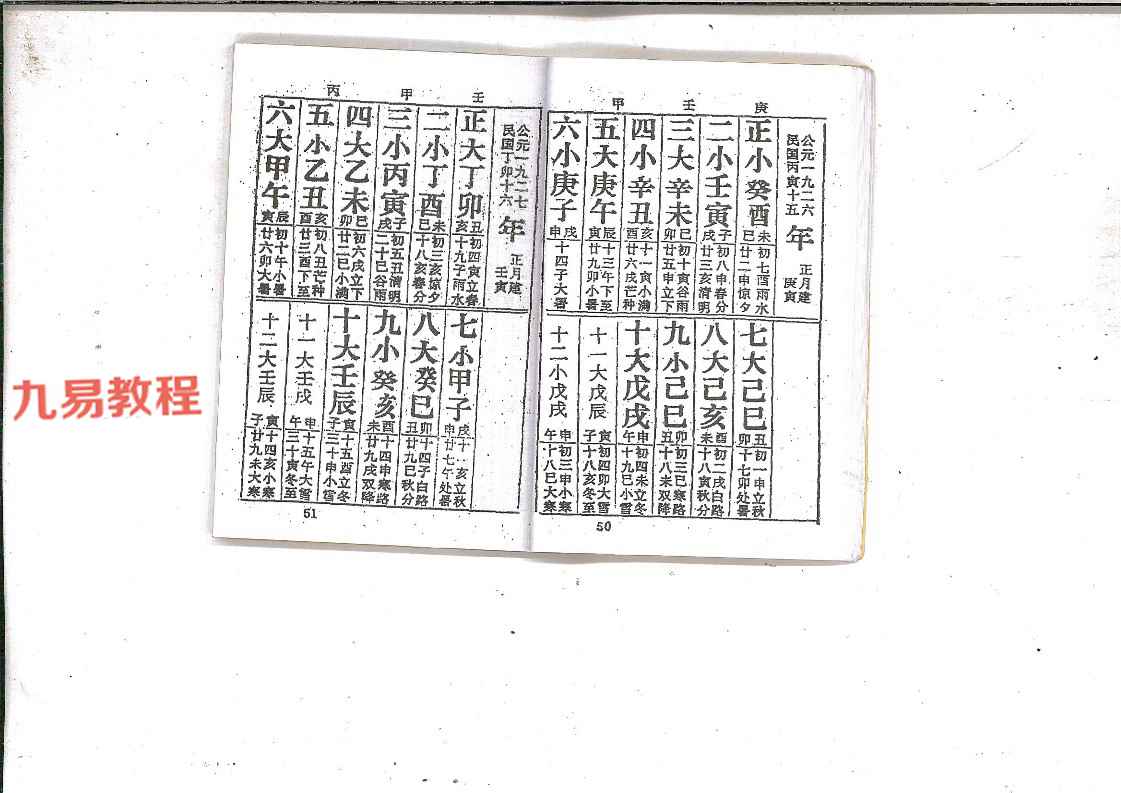 庚
壬
甲
公元一九二六
民国丙寅十五
年
正月建
庚寅
正小癸酉
未初七酉雨水
巳廿二申惊夕
二小壬寅
子初八申春分
戌廿三亥清明
三大辛未
巳初十寅谷雨
卯廿五申立下
四小辛丑
亥十一寅小满
酉廿六戌芒种
五大庚午
辰十三午下至
寅廿九卯小暑
六小庚子
戌
申十四子大暑
七大己巳
丑初一申立秋
卯十七卯处暑
八大己亥
酉初二戌白路
未十八寅秋分
九小己巳
卯初三巳寒路
丑十八未双降
十大戊戌
申初四未立冬
午十九巳小雪
十一大戊辰
寅初四卯大雪
子十八亥冬至
十二小戊戌
申初三申小寒
午十八巳大寒
50
壬
甲
丙
公元一九二七
民国丁卯十六
年
正月建
壬寅
正大丁卯
丑初四寅立春
亥十九子雨水
二小丁酉
未初三亥惊夕
巳十八亥春分
三小丙寅
子初五丑清明
戌二十巳谷雨
四大乙未
巳初六戌立下
卯廿二巳小满
五小乙丑
亥初八丑芒种
酉廿三酉下至
六大甲午
辰初十午小暑
寅廿六卯大暑
七小甲子
戌十一亥立秋
申廿七午处暑
八大癸巳
卯十四子白路
丑廿九巳秋分
九小癸亥
酉十四申寒路
未廿九戌双降
十大壬辰
寅十五酉立冬
子三十申小雪
十一大壬戌
申十五午大雪
午三十寅冬至
十二大壬辰
寅十四亥小寒
子廿九未大寒
51
九易教程